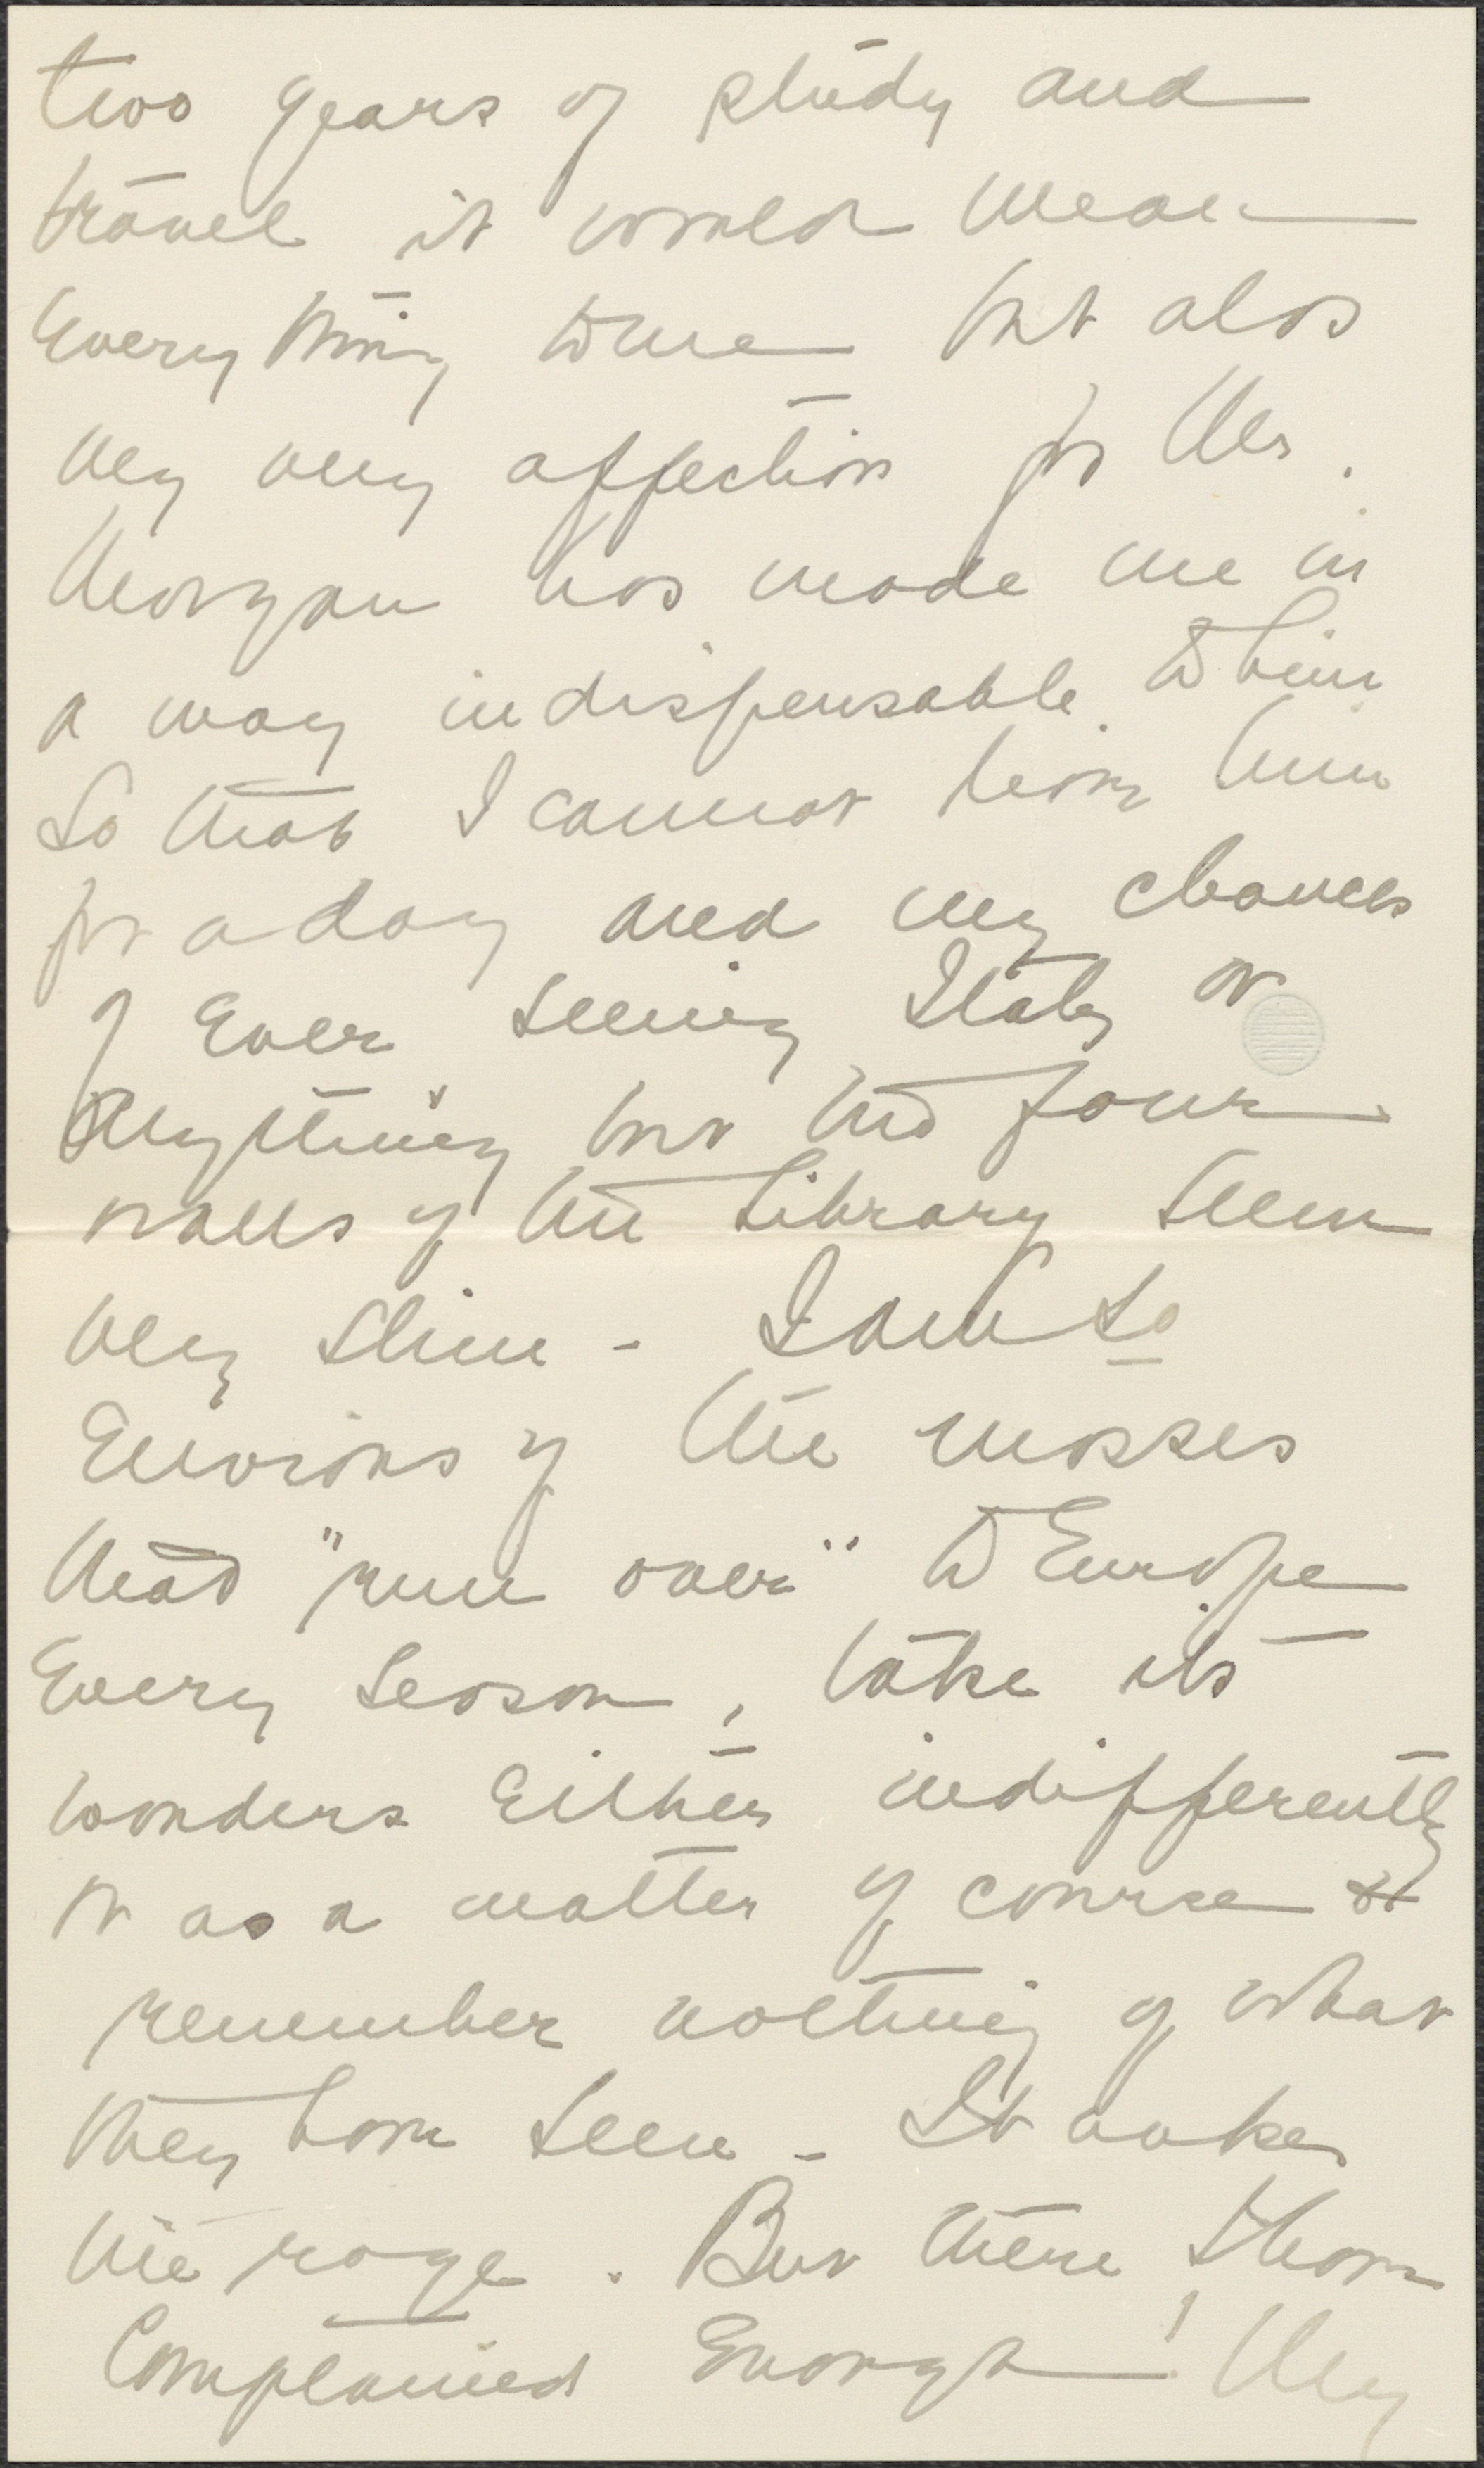 two years of study and
travel it would mean
everything to me but alas
my very affection for Mr.
Morgan has made me in
a way indispensable to him
so that I cannot leave him
for a day and my chances
of ever seeing Italy or
anything but the four
walls of the Library seem
very slim - I am so
envious of the masses
that "run over" to Europe
every season, take its
wonders either indifferently
or as a matter of course &
remember nothing of what
they have seen - It makes
me rage. But there I have
complained enough! My